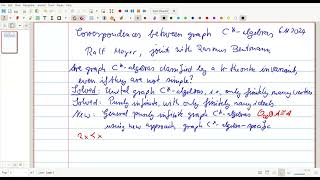 Correspondences between graph C*-algebras 6.11.2024
Ralf Meyer, joint with Rasmus Bentmann
Are graph C*-algebras classified by a K-theoretic invariant,
even if they are not simple?
Solved: Unital graph C*-algebras, i.e., only finitely many vertices
Solved: Purely infinite, with only finitely many ideals.
New: General purely infinite graph C*-algebras O∞⊗A≅A
using new approach, graph C*-algebra-specific
2x≤x